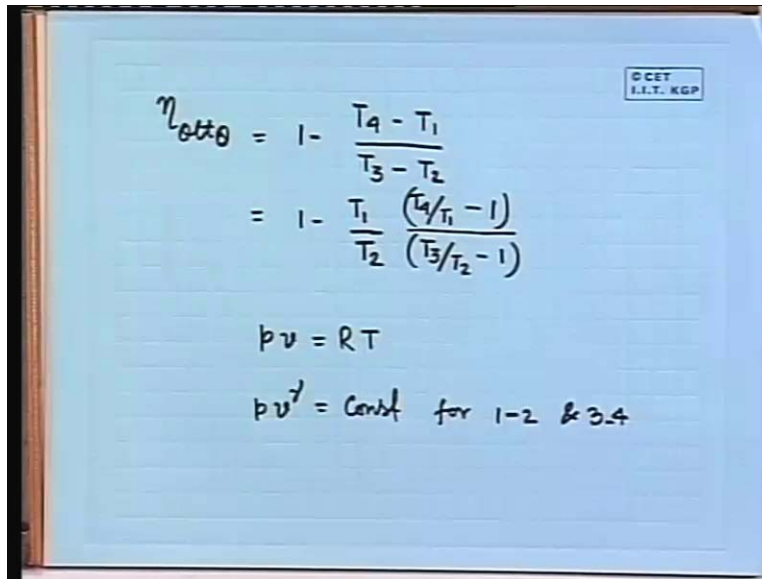 © CET
I.I.T. KGP
η_otto = 1 - (T4 - T1) / (T3 - T2)
= 1 - T1/T2 (T4/T1 - 1) / (T3/T2 - 1)
pv = RT
pv^γ = Const for 1-2 & 3-4